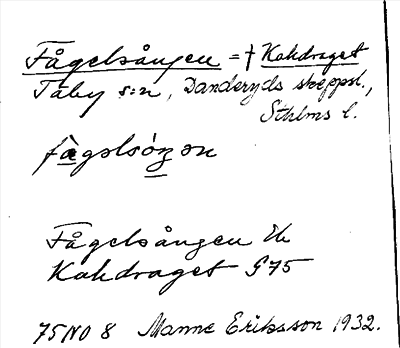 Fågelsången = † Kakdraget
Täby s:n, Danderyds skeppsl.,
Sthlms l.
fàgəlsóŋən
Fågelsången Ek
Kakdraget G75
75 NO 8 Manne Eriksson 1932.